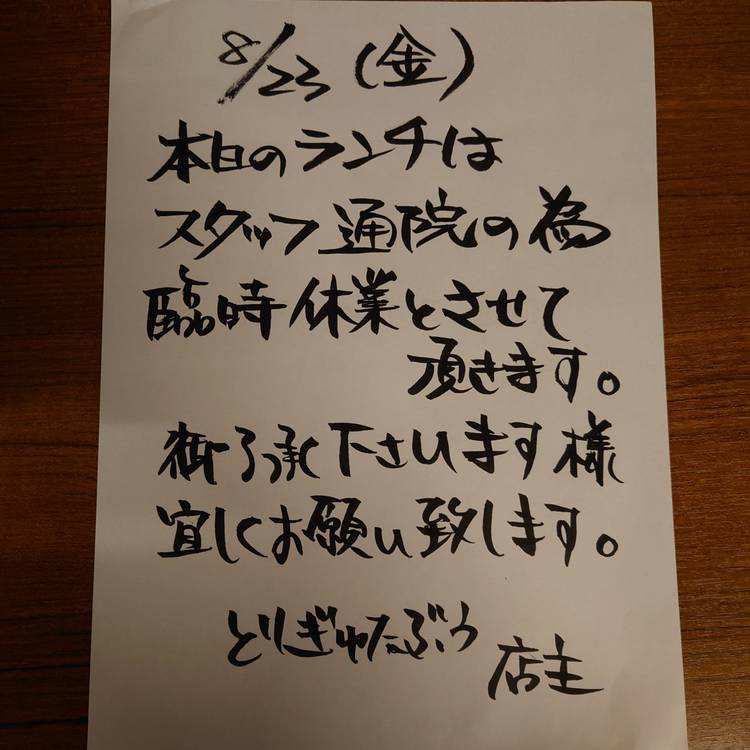 8/23 (金)
本日のランチは
スタッフ通院の為
臨時休業とさせて
頂きます。
御了承下さいます様
宜しくお願い致します。
とりぎゅたぶう
店主